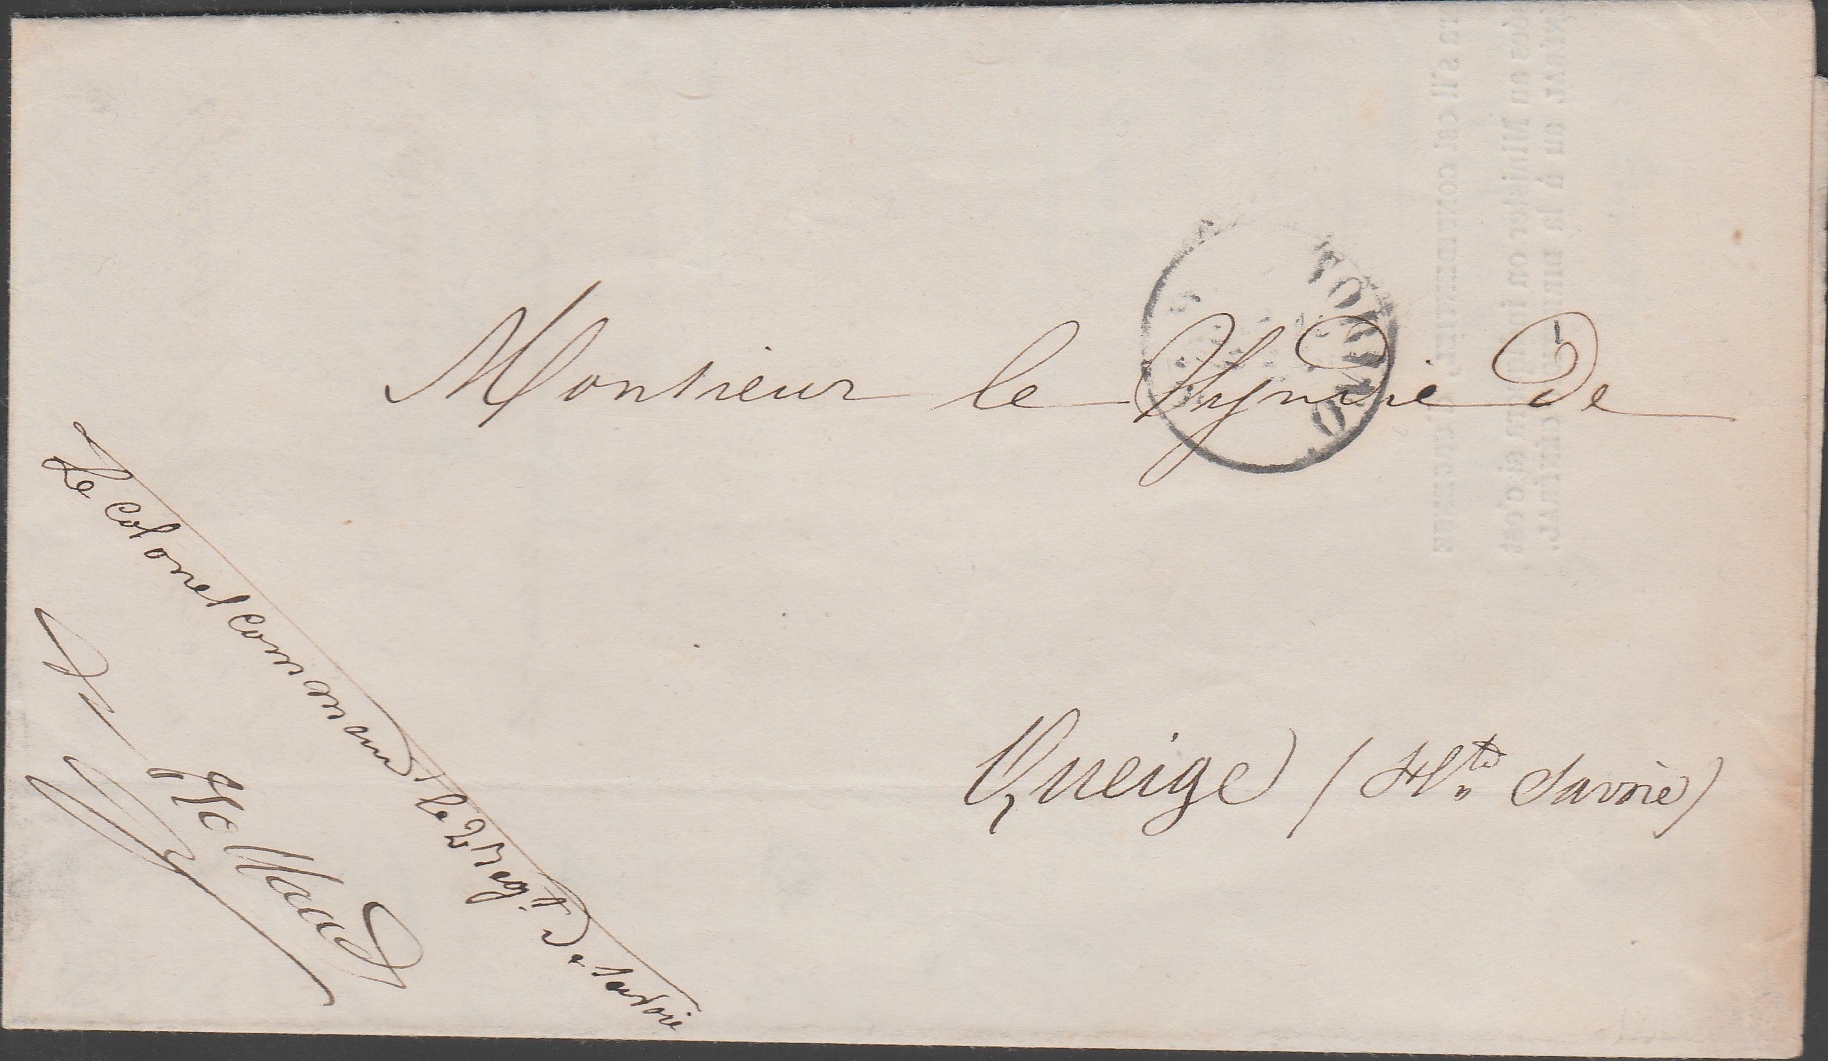 TORINO
Monsieur le Syndic de
Queige (Hte Savoie)
Le Colonel Command.t le 2e Reg.t De Savoie